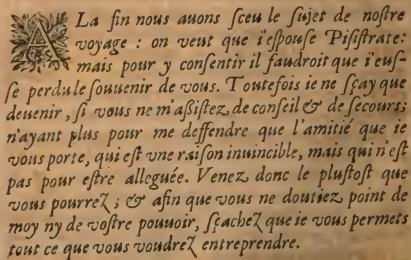 A La fin nous auons ſceu le ſujet de noſtre
voyage : on veut que i'eſpouſe Piſiſtrate:
mais pour y conſentir il faudroit que i'euſ-
ſe perdu le ſouuenir de vous. Toutefois ie ne ſçay que
deuenir, ſi vous ne m'aßiſtez de conſeil & de ſecours;
n'ayant plus pour me deffendre que l'amitié que ie
vous porte, qui eſt vne raiſon inuincible, mais qui n'eſt
pas pour eſtre alleguée. Venez donc le pluſtoſt que
vous pourrez ; & afin que vous ne doutiez point de
moy ny de voſtre pouuoir, ſçachez que ie vous permets
tout ce que vous voudrez entreprendre.